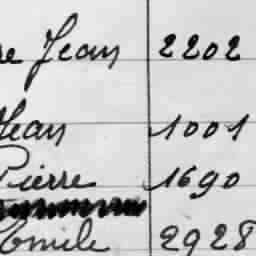 re Jean 2202
Jean 1001
Pierre 1690
Emile 2928